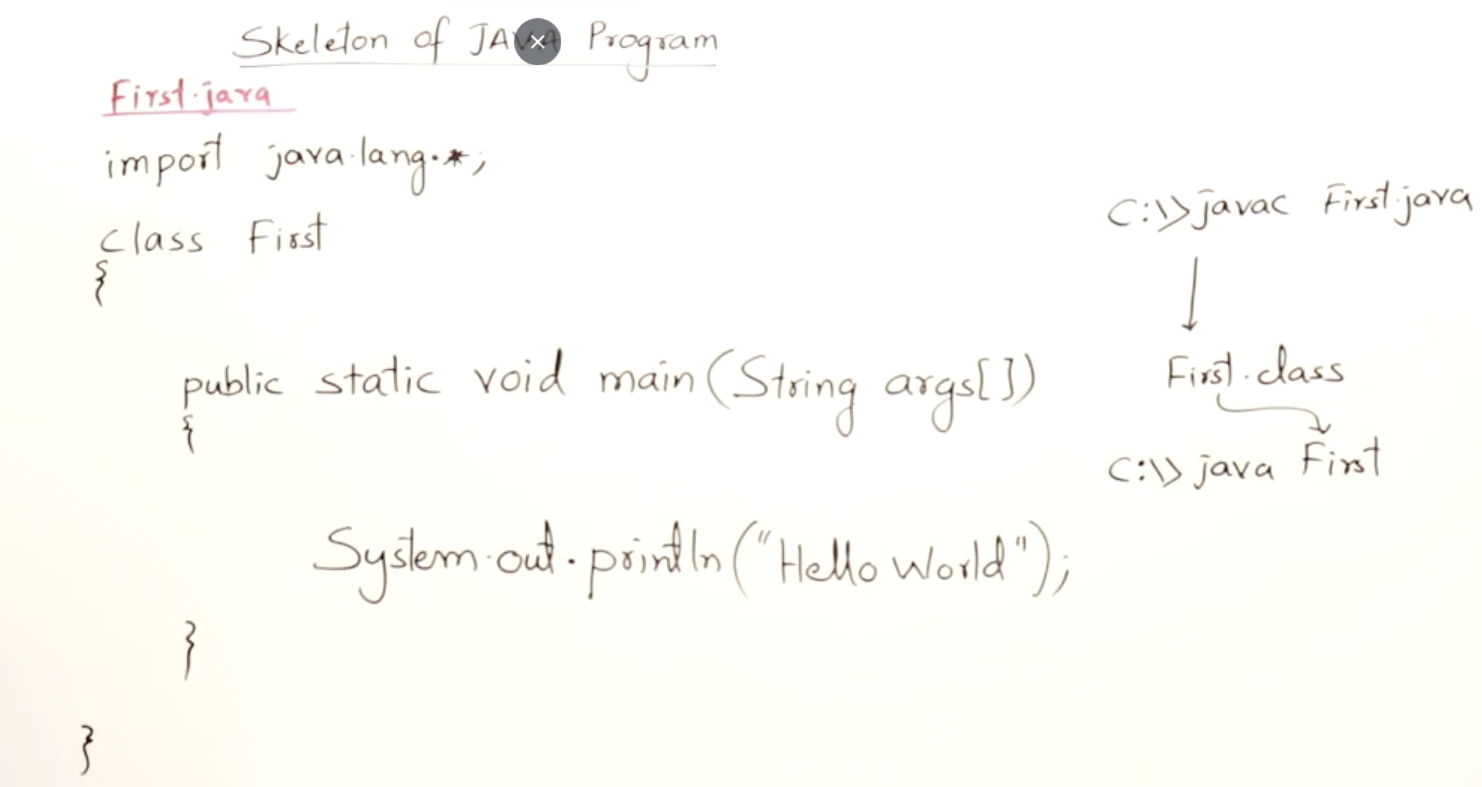 Skeleton of JAVA Program
First.java
import java.lang.*;
class First
{
public static void main(String args[])
{
System.out.println("Hello World");
}
}
C:\>javac First.java
First.class
C:\> java First